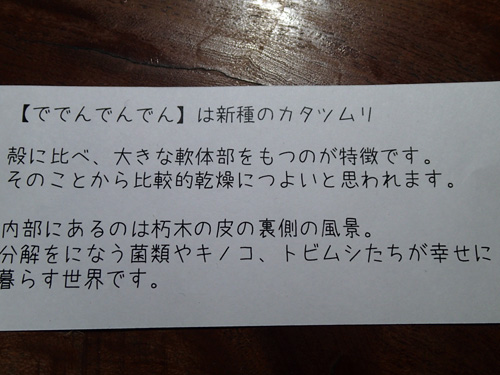 【ででんでんでん】は新種のカタツムリ
殻に比べ、大きな軟体部をもつのが特徴です。
そのことから比較的乾燥につよいと思われます。
内部にあるのは朽木の皮の裏側の風景。
分解をになう菌類やキノコ、トビムシたちが幸せに
暮らす世界です。